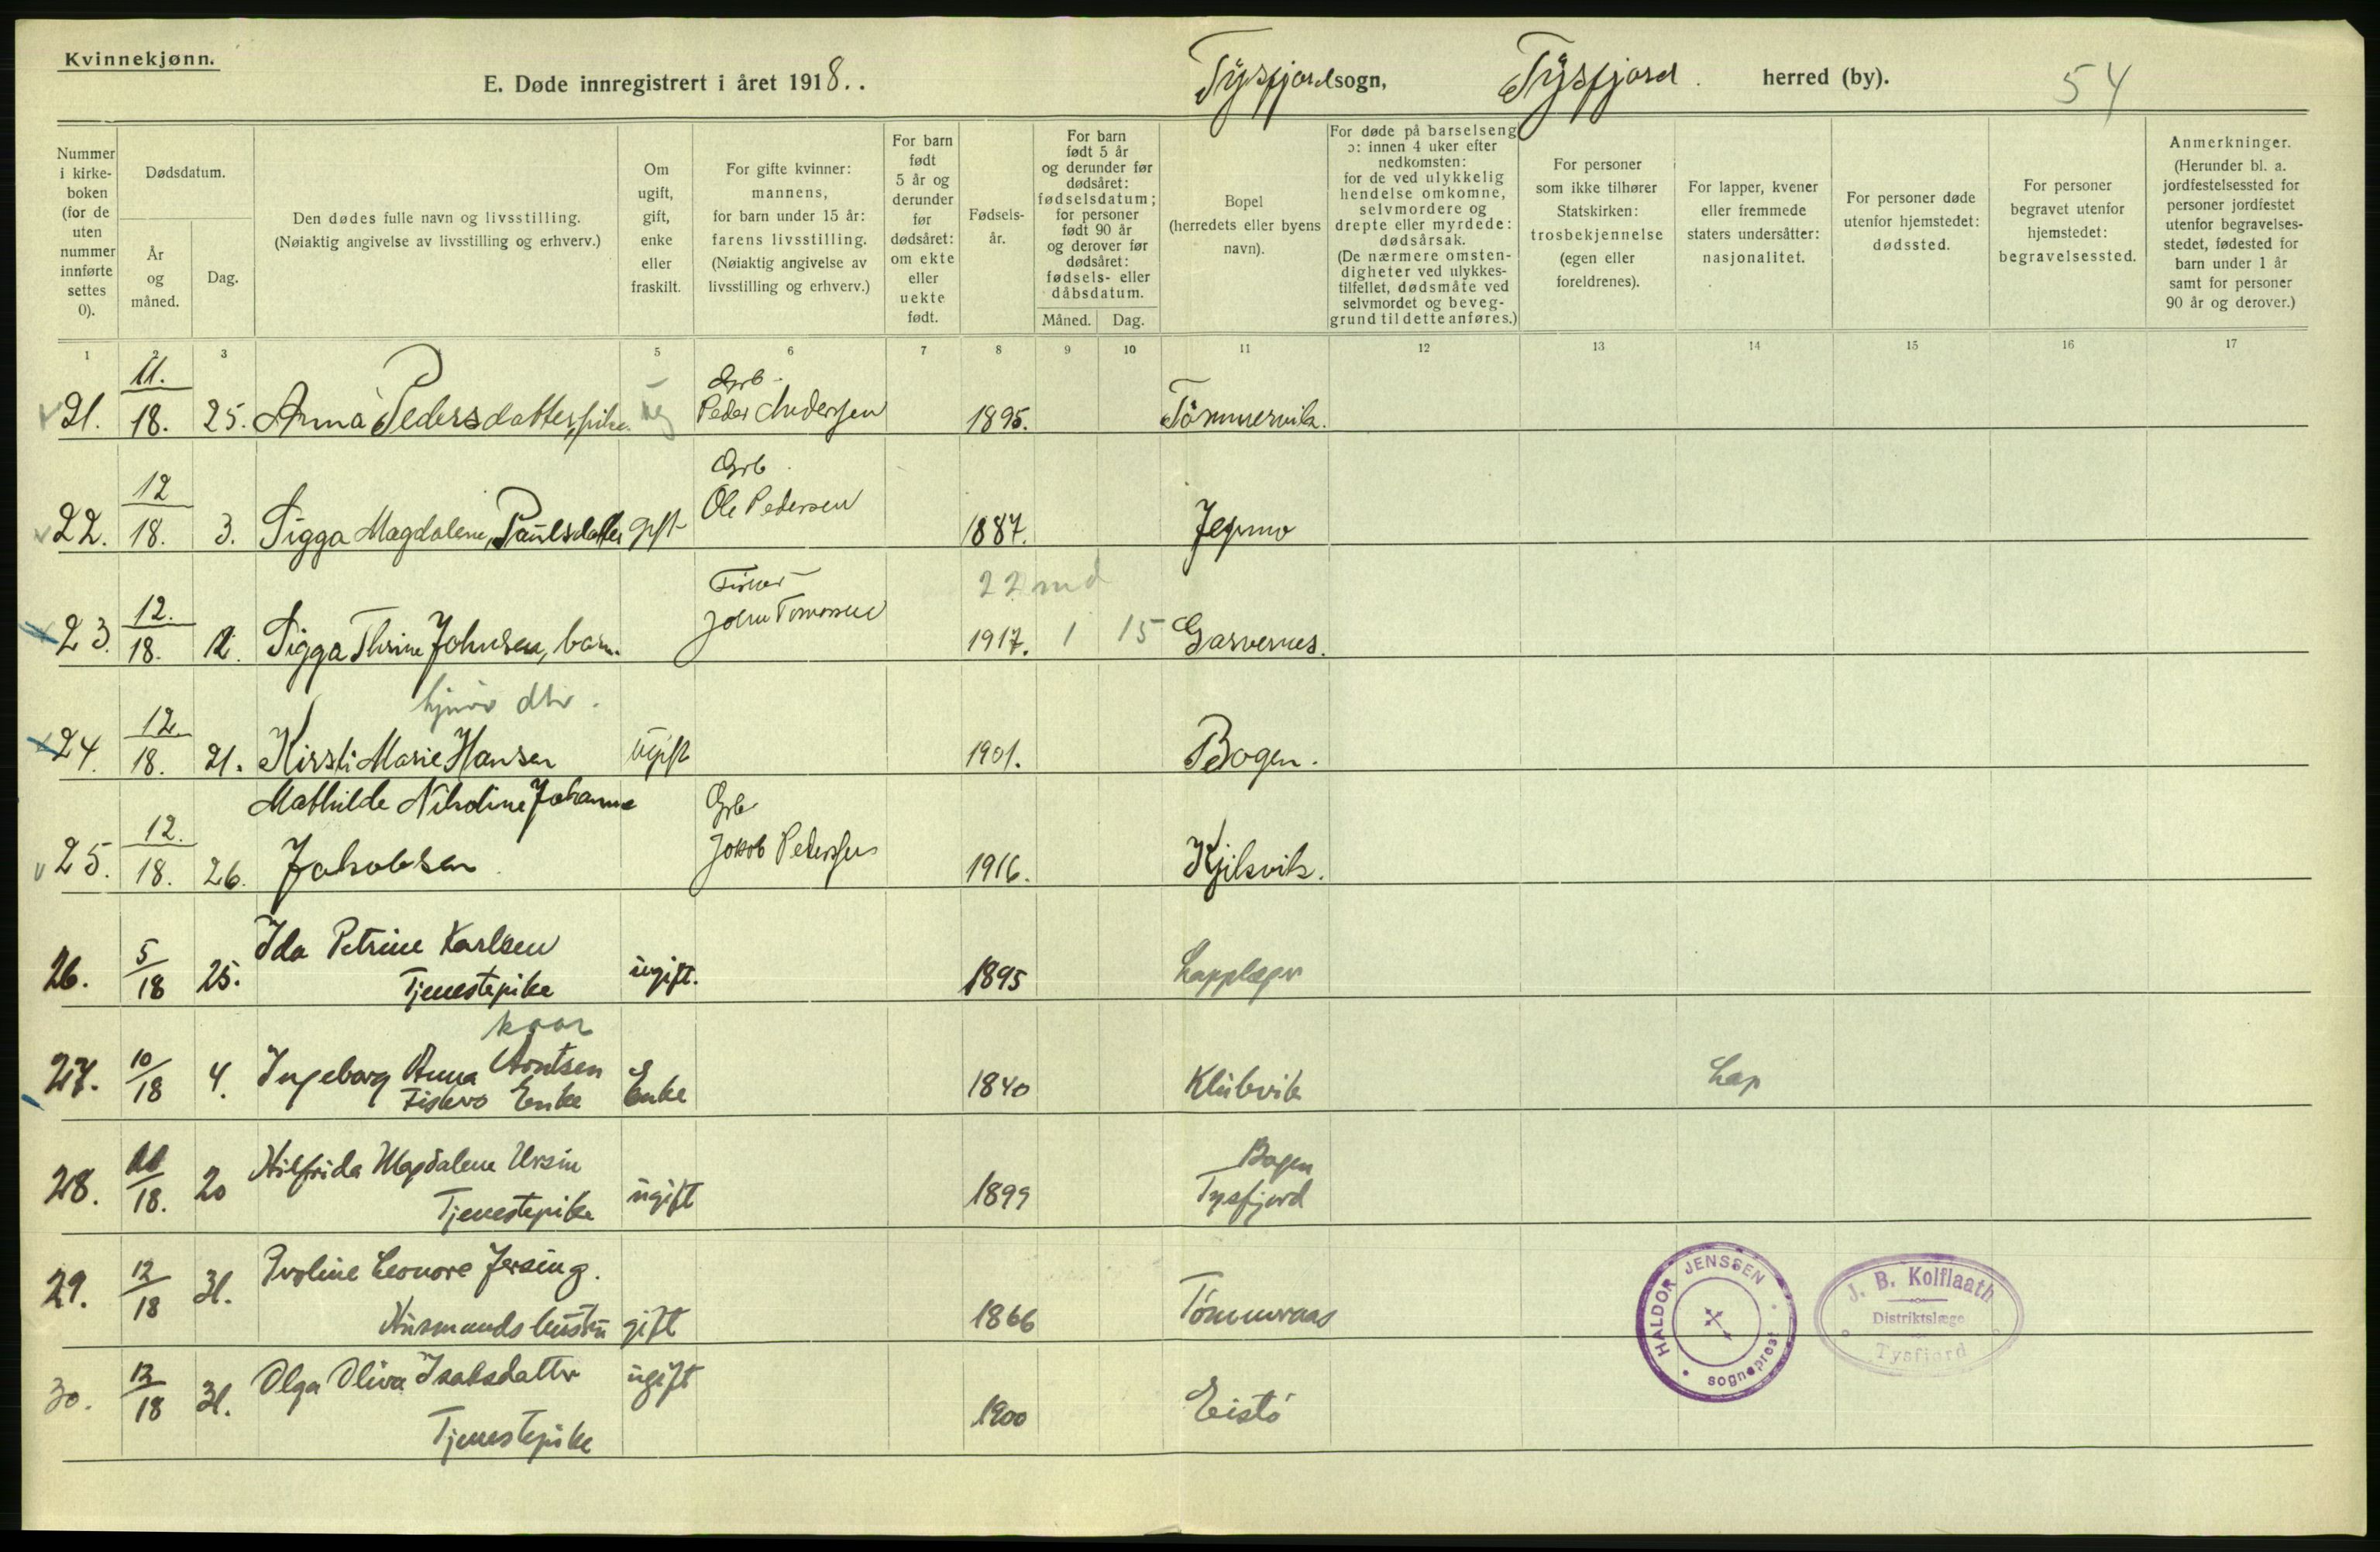 Kvinnekjønn.
E. Døde innregistrert i året 1918..
Tysfjord sogn,
Tysfjord. herred (by).
54
Nummer i kirke-boken (for de uten nummer innførte settes 0).
Dødsdatum.
År og måned.
Dag.
Den dødes fulle navn og livsstilling.
(Nøiaktig angivelse av livsstilling og erhverv.)
Om ugift, gift, enke eller fraskilt.
For gifte kvinner: mannens, for barn under 15 år: farens livsstilling.
(Nøiaktig angivelse av livsstilling og erhverv.)
For barn født 5 år og derunder før dødsåret: om ekte eller uekte født.
Fødsels-år.
For barn født 5 år og derunder før dødsåret: fødselsdatum; for personer født 90 år og derover før dødsåret: fødsels- eller dåbsdatum.
Måned.
Dag.
Bopel
(herredets eller byens navn).
For døde på barselseng ɔ: innen 4 uker efter nedkomsten: for de ved ulykkelig hendelse omkomne, selvmordere og drepte eller myrdede: dødsårsak.
(De nærmere omsten-digheter ved ulykkes-tilfellet, dødsmåte ved selvmordet og beveg-grund til dette anføres.)
For personer som ikke tilhører Statskirken: trosbekjennelse (egen eller foreldrenes).
For lapper, kvener eller fremmede staters undersåtter: nasjonalitet.
For personer døde utenfor hjemstedet: dødssted.
For personer begravet utenfor hjemstedet: begravelsessted.
Anmerkninger.
(Herunder bl. a. jordfestelsessted for personer jordfestet utenfor begravelses-stedet, fødested for barn under 1 år samt for personer 90 år og derover.)
1 2 3 5 6 7 8 9 10 11 12 13 14 15 16 17
21. 11./18. 25. Anna Pedersdatter, pike. ug Grb. Peder Andersen 1895. Tømmervik.
22. 12/18. 3. Sigga Magdalene, Paulsdatter gift Grb. Ole Pedersen 1887.
22 md
23. 12./18. Sigga Thrine Johnsen, barn. Fisker John Tomassen 1917. 1 15 Garvernes.
dtr.
24. 12./18. 21. Kirsti Marie Hansen Ugift 1901. Bogen.
Mathilde Nikoline Johanne
25. 12./18. 26. Jakobsen Grb Jakob Pedersen 1916. Kjilsvik.
26. 5/18 25. Ida Petrine Karlsen
Tjenestepike ugift. 1895
kaar
27. 10/18 4. Ingeborg Anna Arntsen
Fisker Enke Enke 1840 Klubvik Lap
28. 18. 20 Hilfrida Magdalene Ursin
Tjenestepike ugift 1899 Bogen Tysfjord
29. 12/18 31. Proline Leonore Jersing.
Husmands hustru gift 1866 Tømmeraas
30. 12/18 31. Olga Oliva Isaksdatter ugift
Tjenestepike 1900 Eistø
HALDOR JENSSEN
sogneprest
J. B. Kolflaath
Distriktslæge
Tysfjord